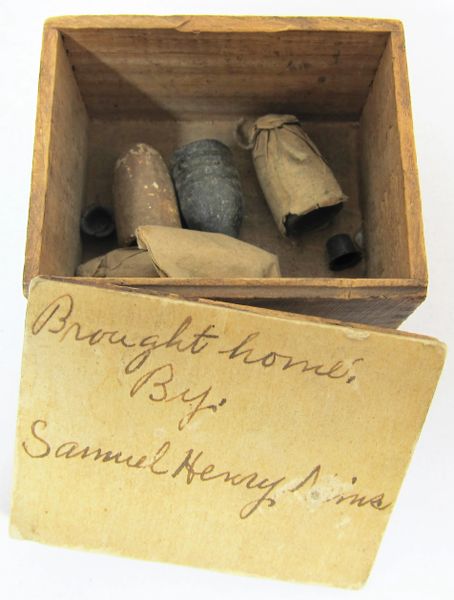 Brought home.
By.
Samuel Henry